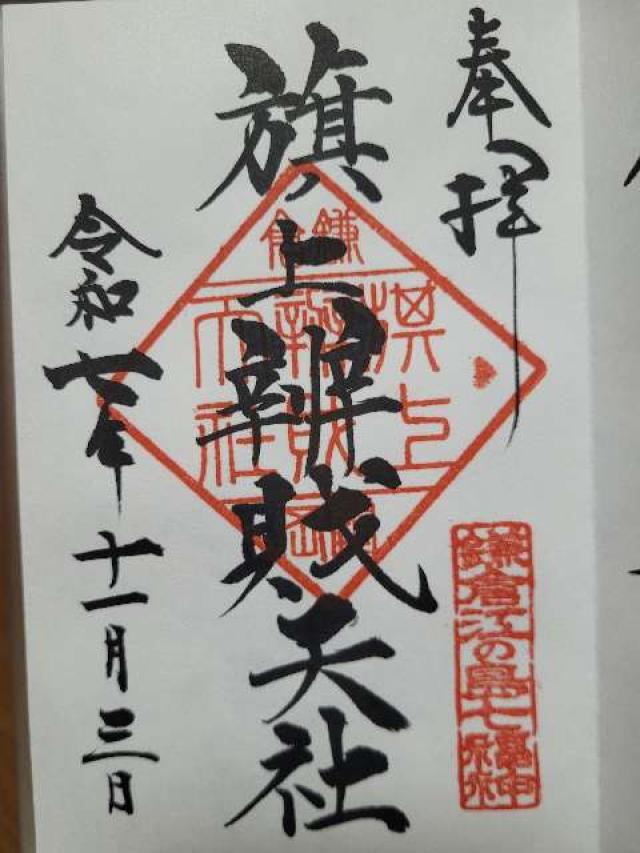 奉拝
旗上辨財天社
令和七年十一月三日
鎌倉
旗上
辨財
天社
鎌倉江の島七福神